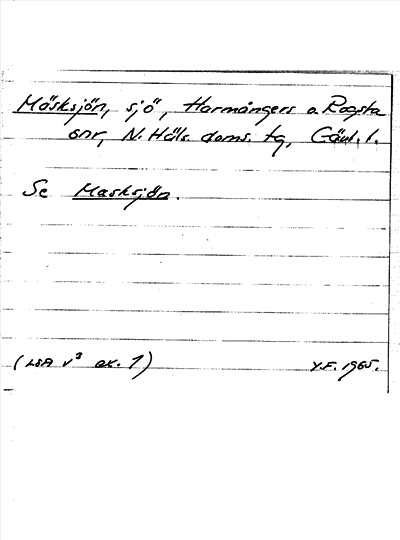 Mäsksjön, sjö, Harmångers o. Rogsta
snr, N. Häls. doms. tg, Gävl. l.
Se Masksjön.
(LSA v³ ex. 1)
Y.F. 1965.